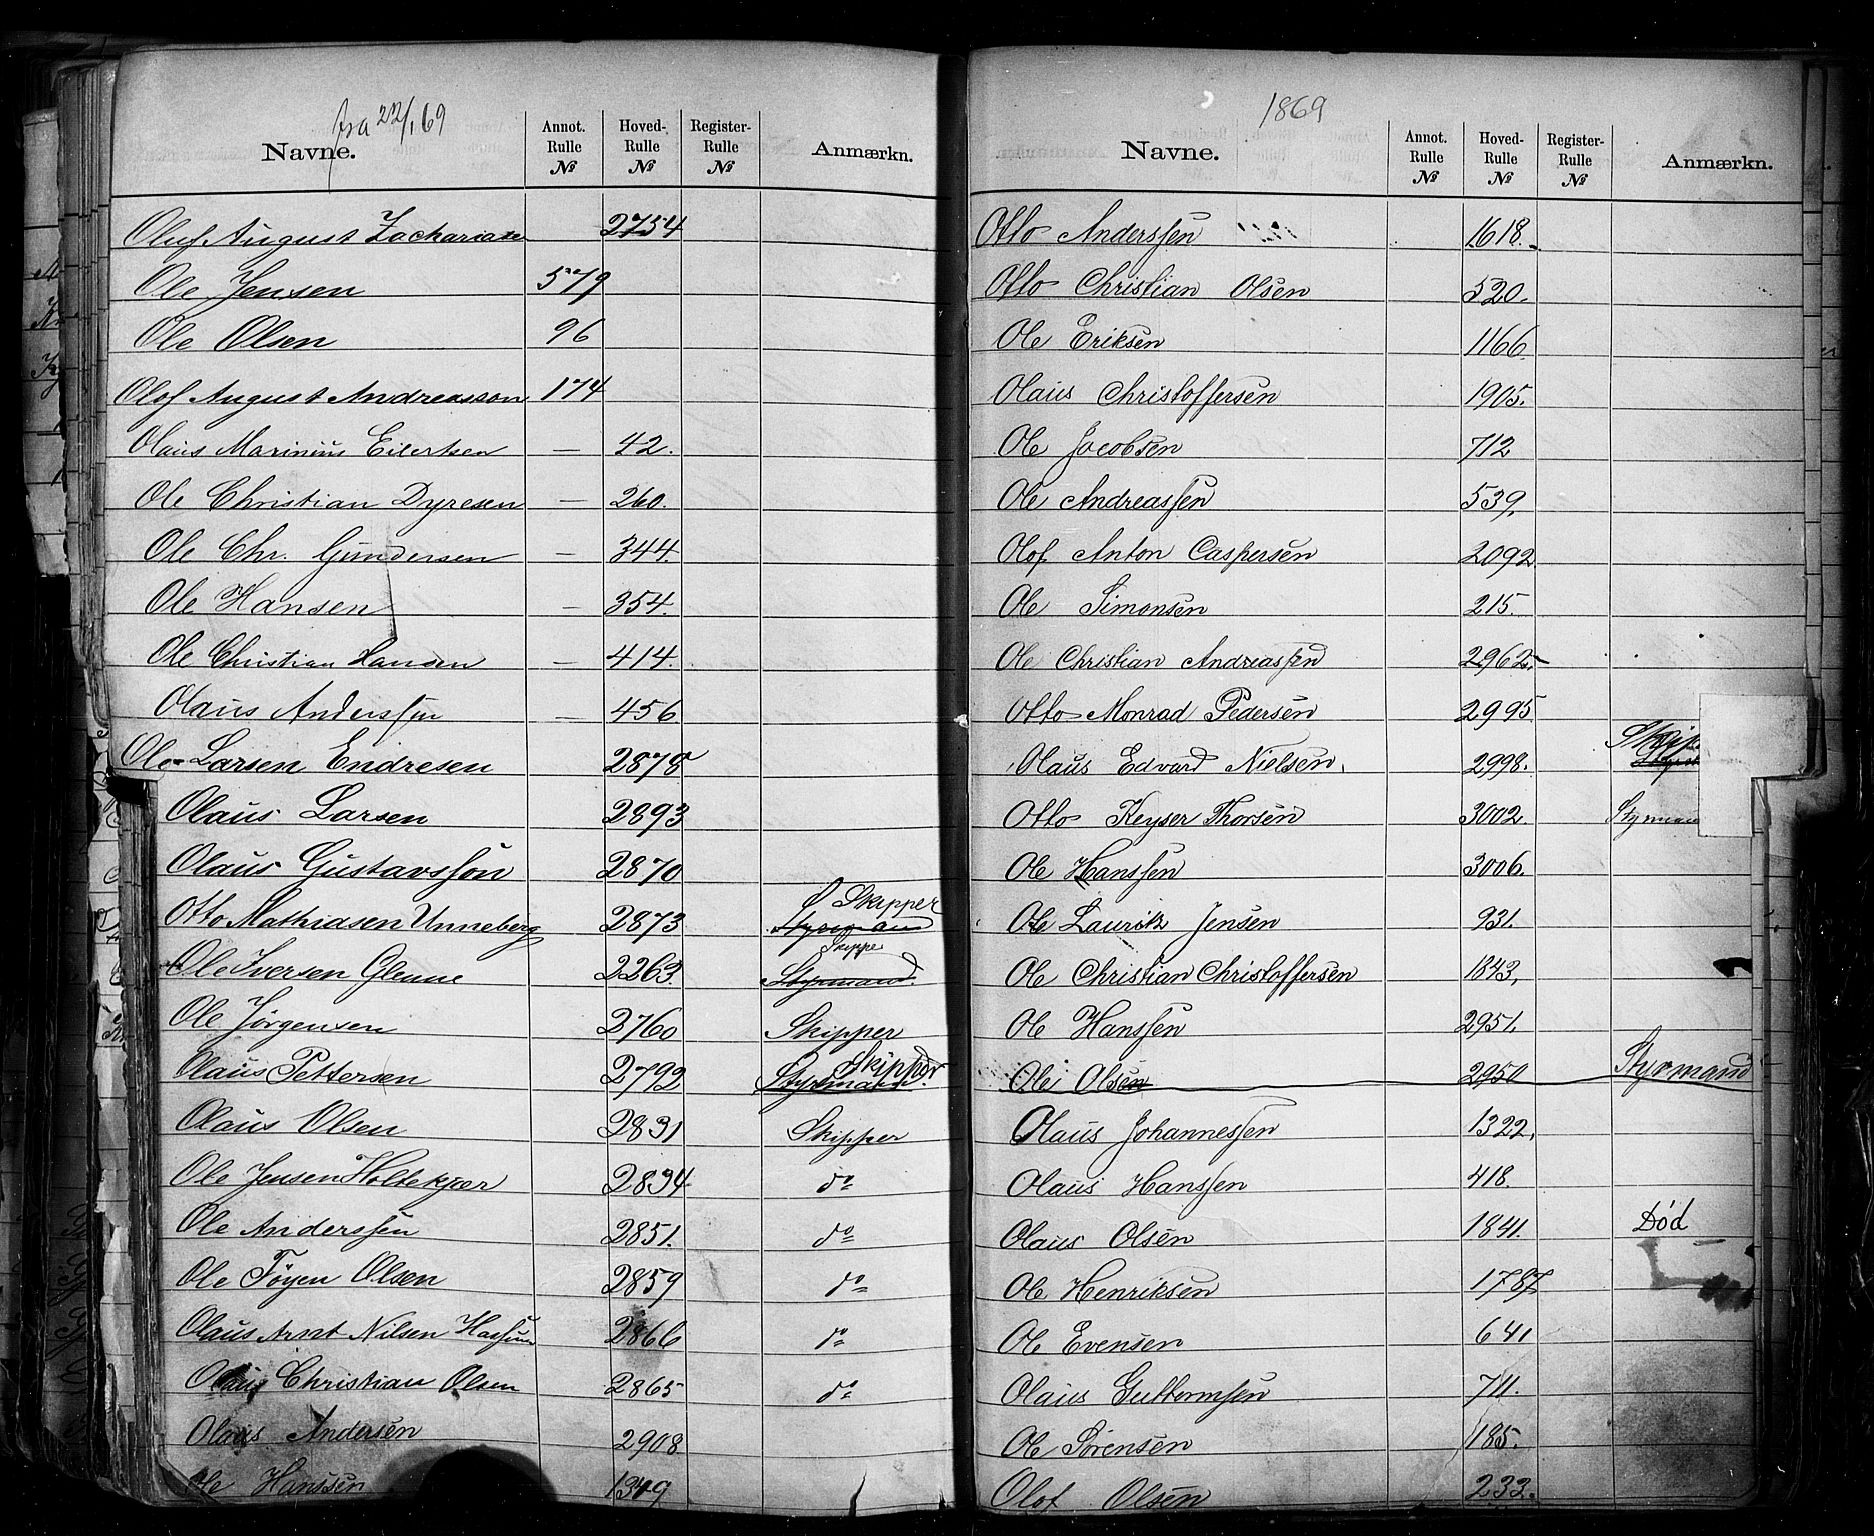 fra 22/1 69
Navne. Annot. Rulle № Hoved-Rulle № Register-Rulle № Anmærkn.
Oluf August Zachariasen 2754
Ole Jensen 579
Ole Olsen 96
Olof August Andreasson 174
Olaus Marinius Eilertsen — 42.
Ole Christian Dyresen — 260.
Ole Chr. Gundersen — 344.
Ole Hansen — 354.
Ole Christian Hansen — 414.
Olaus Anderssen — 456
Ole Larsen Endresen 2878
Olaus Larsen 2893
Olaus Gustavsson 2870
Otto Mathiasen Unneberg 2873 Styrmand Skipper
Ole Iversen Glenne 2263. Styrmand Skipper
Ole Jørgensen 2760 Skipper
Olaus Pettersen 2792 Styrmand Skipper
Olaus Olsen 2831 Skipper
Ole Jensen Holtekjær 2834. do
Ole Anderssen 2851. do
Ole Føyen Olsen 2859 do
Olaus Arnt Nilsen 2866 do
Olaus Christian Olsen 2865 do
Olaus Andersen 2908
Ole Hanssen 1349
1869
Navne. Annot. Rulle № Hoved-Rulle № Register-Rulle № Anmærkn.
Otto Anderssen 1618.
Otto Christian Olsen 520.
Ole Eriksen 1166
Olaus Christoffersen 1905.
Ole Jacobsen 712
Ole Andreassen 539.
Olof Anton Caspersen 2092
Ole Simonsen 215.
Ole Christian Andreassen 2962.
Otto Monrad Pedersen 2995
Olaus Edvard Nielsen 2998. Skip
Otto Keyser Thorsen 3002. Styrman
Ole Hanssen 3006.
Ole Lauritz Jensen 931.
Ole Christian Christoffersen 1843.
Ole Hanssen 2951.
Ole Olsen 2950 Styrmand
Olaus Johannessen 1322.
Olaus Hanssen 418.
Olaus Olsen 1841. Død
Ole Henriksen 1787
Ole Evensen 641
Olaus Guttormsen 711.
Ole Sørensen 185.
Olof Olsen 232.